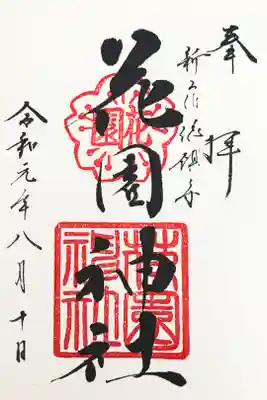 奉拝
新宿総鎮守
花園神社
令和元年八月十日
花園
花園神社